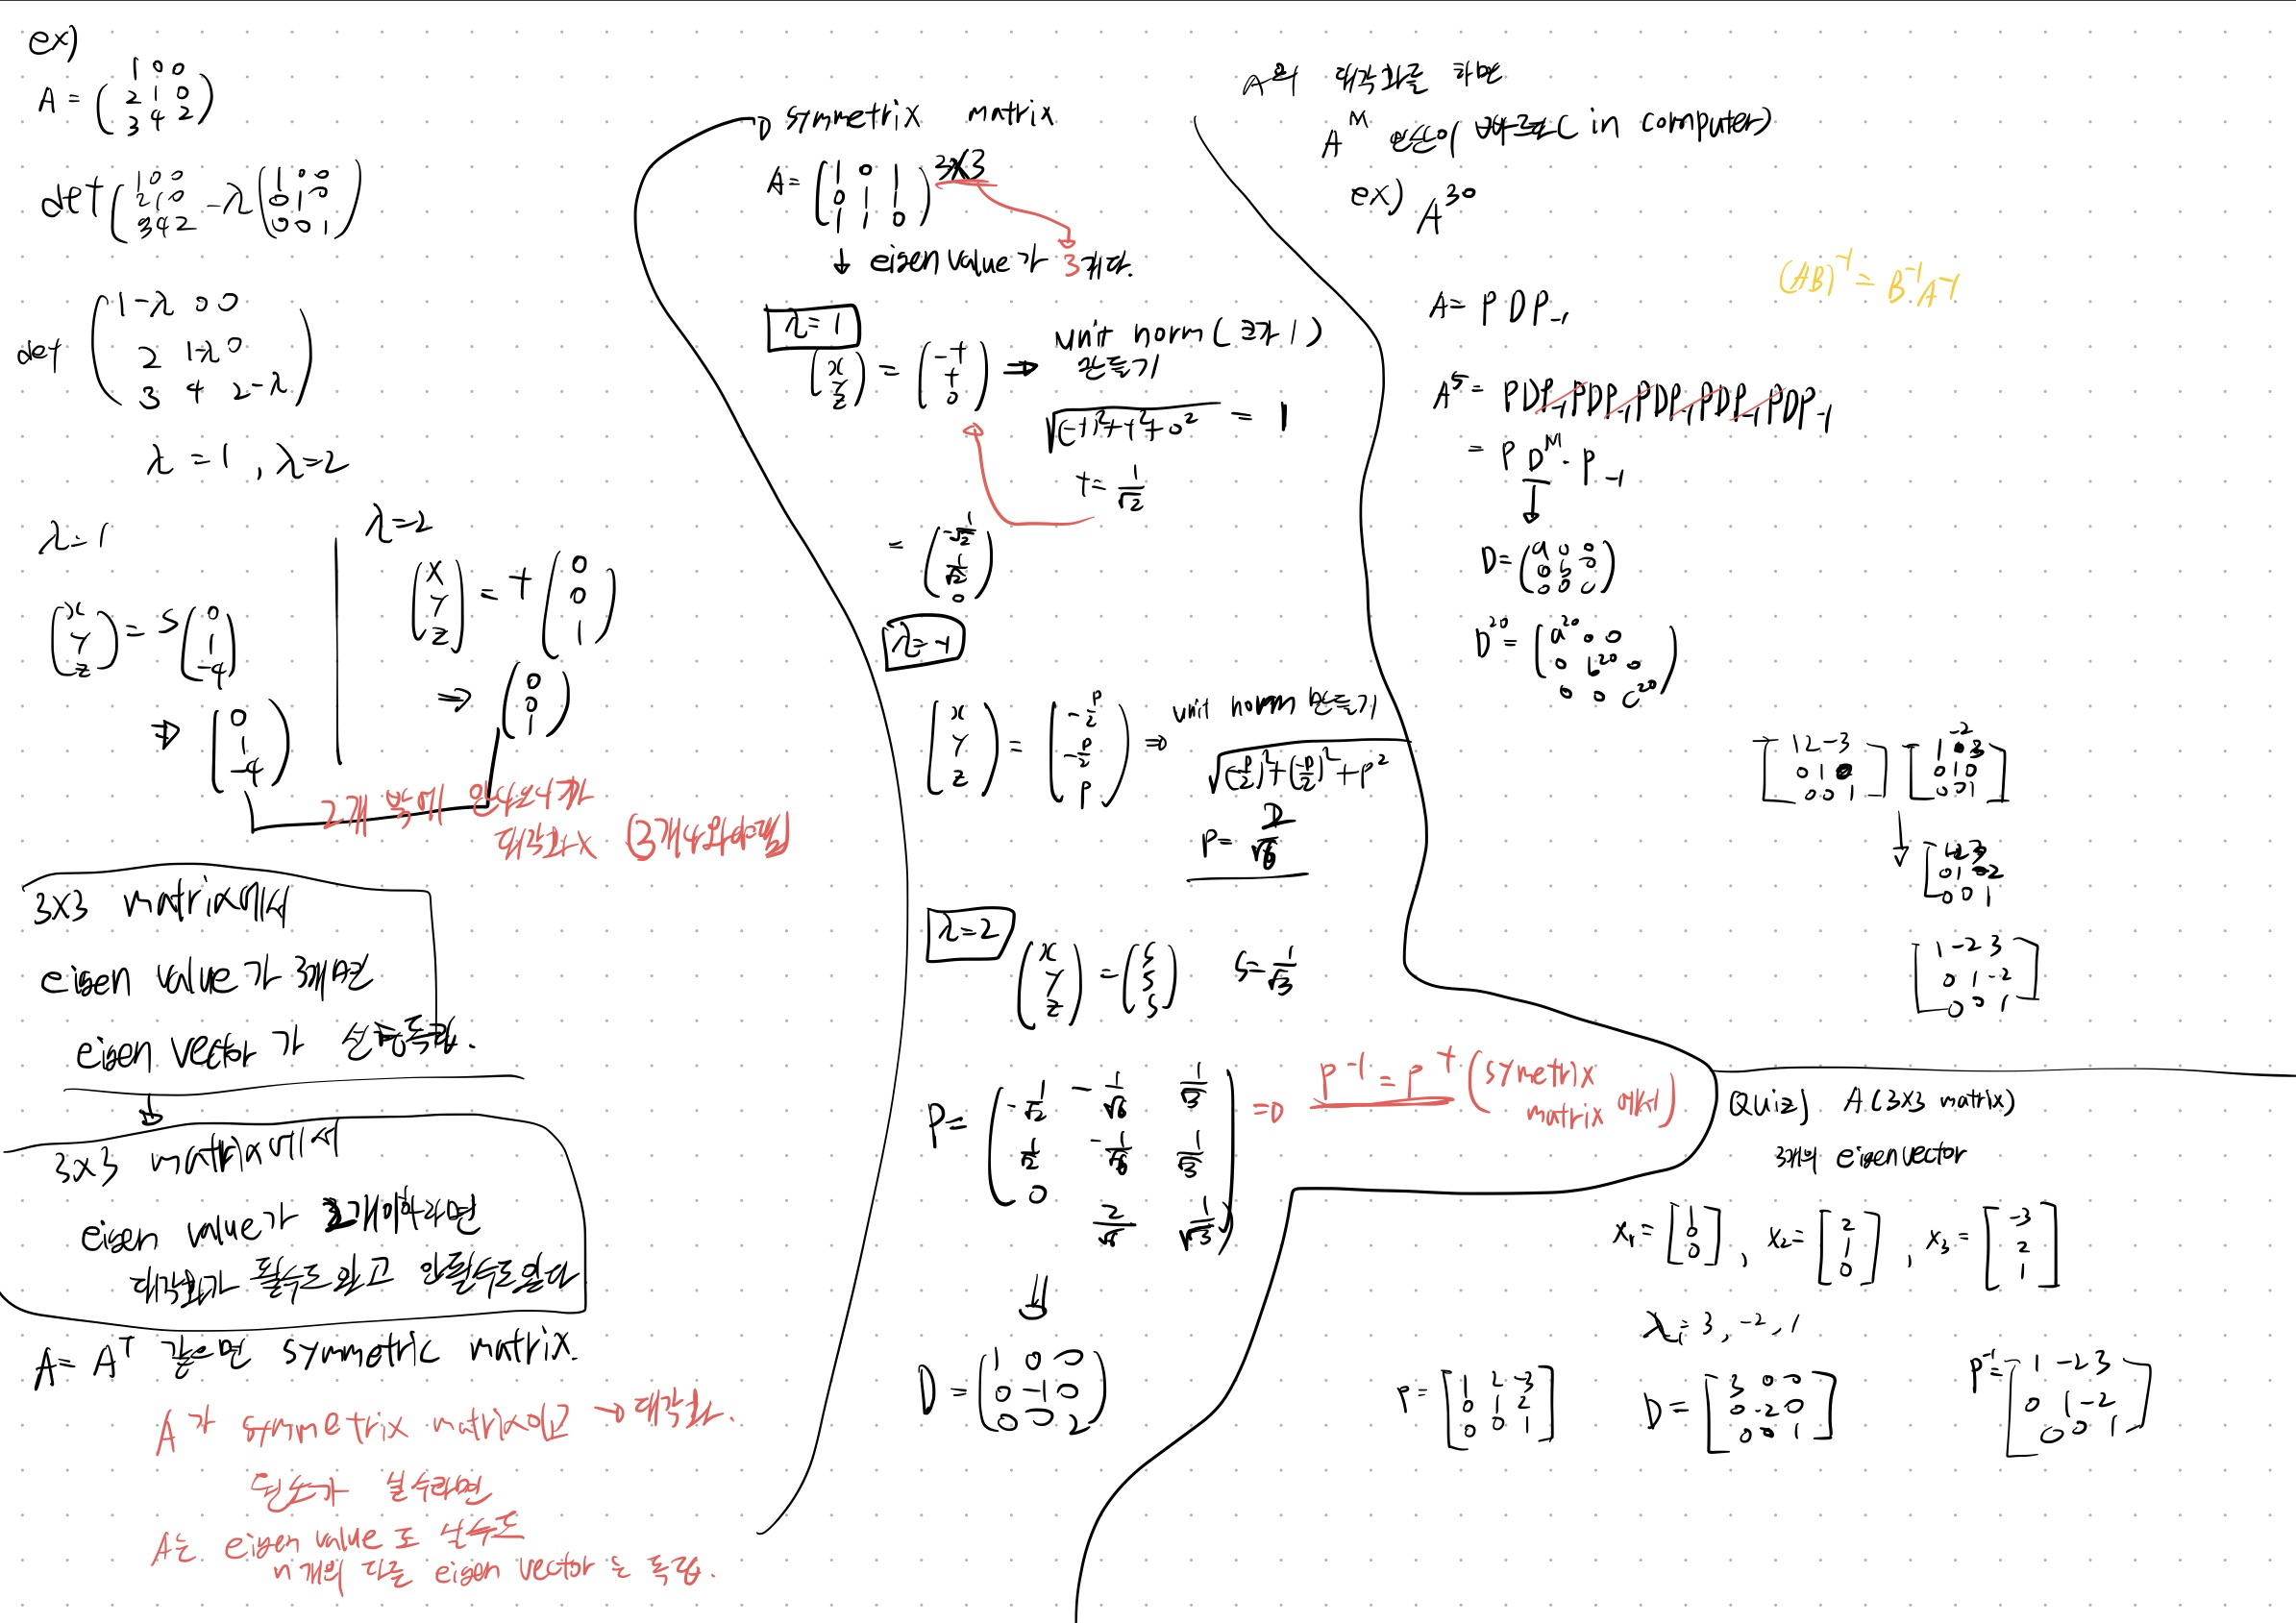 ex)
A = ( 1 0 0
2 1 0
3 4 2 )
det ( 1 0 0
2 1 0
3 4 2 - λ ( 1 0 0
0 1 0
0 0 1 )
det ( 1-λ 0 0
2 1-λ 0
3 4 2-λ )
λ = 1 , λ=2
λ=1
( x
y
z ) = s ( 0
1
-4 )
⇒ ( 0
1
-4 )
λ=2
( x
y
z ) = t ( 0
0
1 )
⇒ ( 0
0
1 )
2개 밖에 안나오니까
대각화 x (3개 나와야됨)
3x3 matrix에서
eigen value가 3개면
eigen vector 가 선형독립.
↓
3x3 matrix에서
eigen value가 2개이하라면
대각화가 될수도 있고 안될수도있다
A = A^T 같으면 symmetric matrix.
A가 symmetrix matrix이고 → 대각화.
원소가 실수라면
A는 eigen value 도 실수도
n개의 다른 eigen vector 는 독립.
symmetrix matrix
A = ( 1 0 1
0 1 1
1 1 0 ) 3X3
↓ eigen value가 3개다.
λ = 1
( x
y
z ) = ( -t
t
0 ) ⇒ unit norm ( 크기 1 )
만들기
√(-t)²+t²+0² = 1
t = 1/√2
= ( -1/√2
1/√2
0 )
λ=-1
( x
y
z ) = ( -p/2
-p/2
p ) ⇒ unit norm 만들기
√(-p/2)²+(-p/2)²+p²
p = 2/√6
λ=2
( x
y
z ) = ( s
s
s ) s = 1/√3
P = ( -1/√2 -1/√6 1/√3
1/√2 -1/√6 1/√3
0 2/√6 1/√3 )
⇒ P^-1 = P^t ( symetrix
matrix 에서 )
⇓
D = ( 1 0 0
0 -1 0
0 0 2 )
A의 대각화를 하면
A^M 연산이 빠르다( in computer)
ex) A^30
(AB)^-1 = B^-1 A^-1
A = P D P-1
A^5 = PDP-1PDP-1PDP-1PDP-1PDP-1
= P D^M · P-1
↓
D = ( a 0 0
0 b 0
0 0 c )
D^20 = ( a^20 0 0
0 b^20 0
0 0 c^20 )
[ 1 2 -3
0 1 0
0 0 1 ] [ 1 -2 3
0 1 0
0 0 1 ]
↓
0 0 1 ]
[ 1 -2 3
0 1 -2
0 0 1 ]
Quiz) A (3X3 matrix)
3개의 eigen vector
x1 = [ 1
0
0 ] , x2 = [ 2
1
0 ] , x3 = [ -3
2
1 ]
λi = 3, -2, 1
P = [ 1 2 -3
0 1 2
0 0 1 ]
D = [ 3 0 0
0 -2 0
0 0 1 ]
P^-1 = [ 1 -2 3
0 1 -2
0 0 1 ]